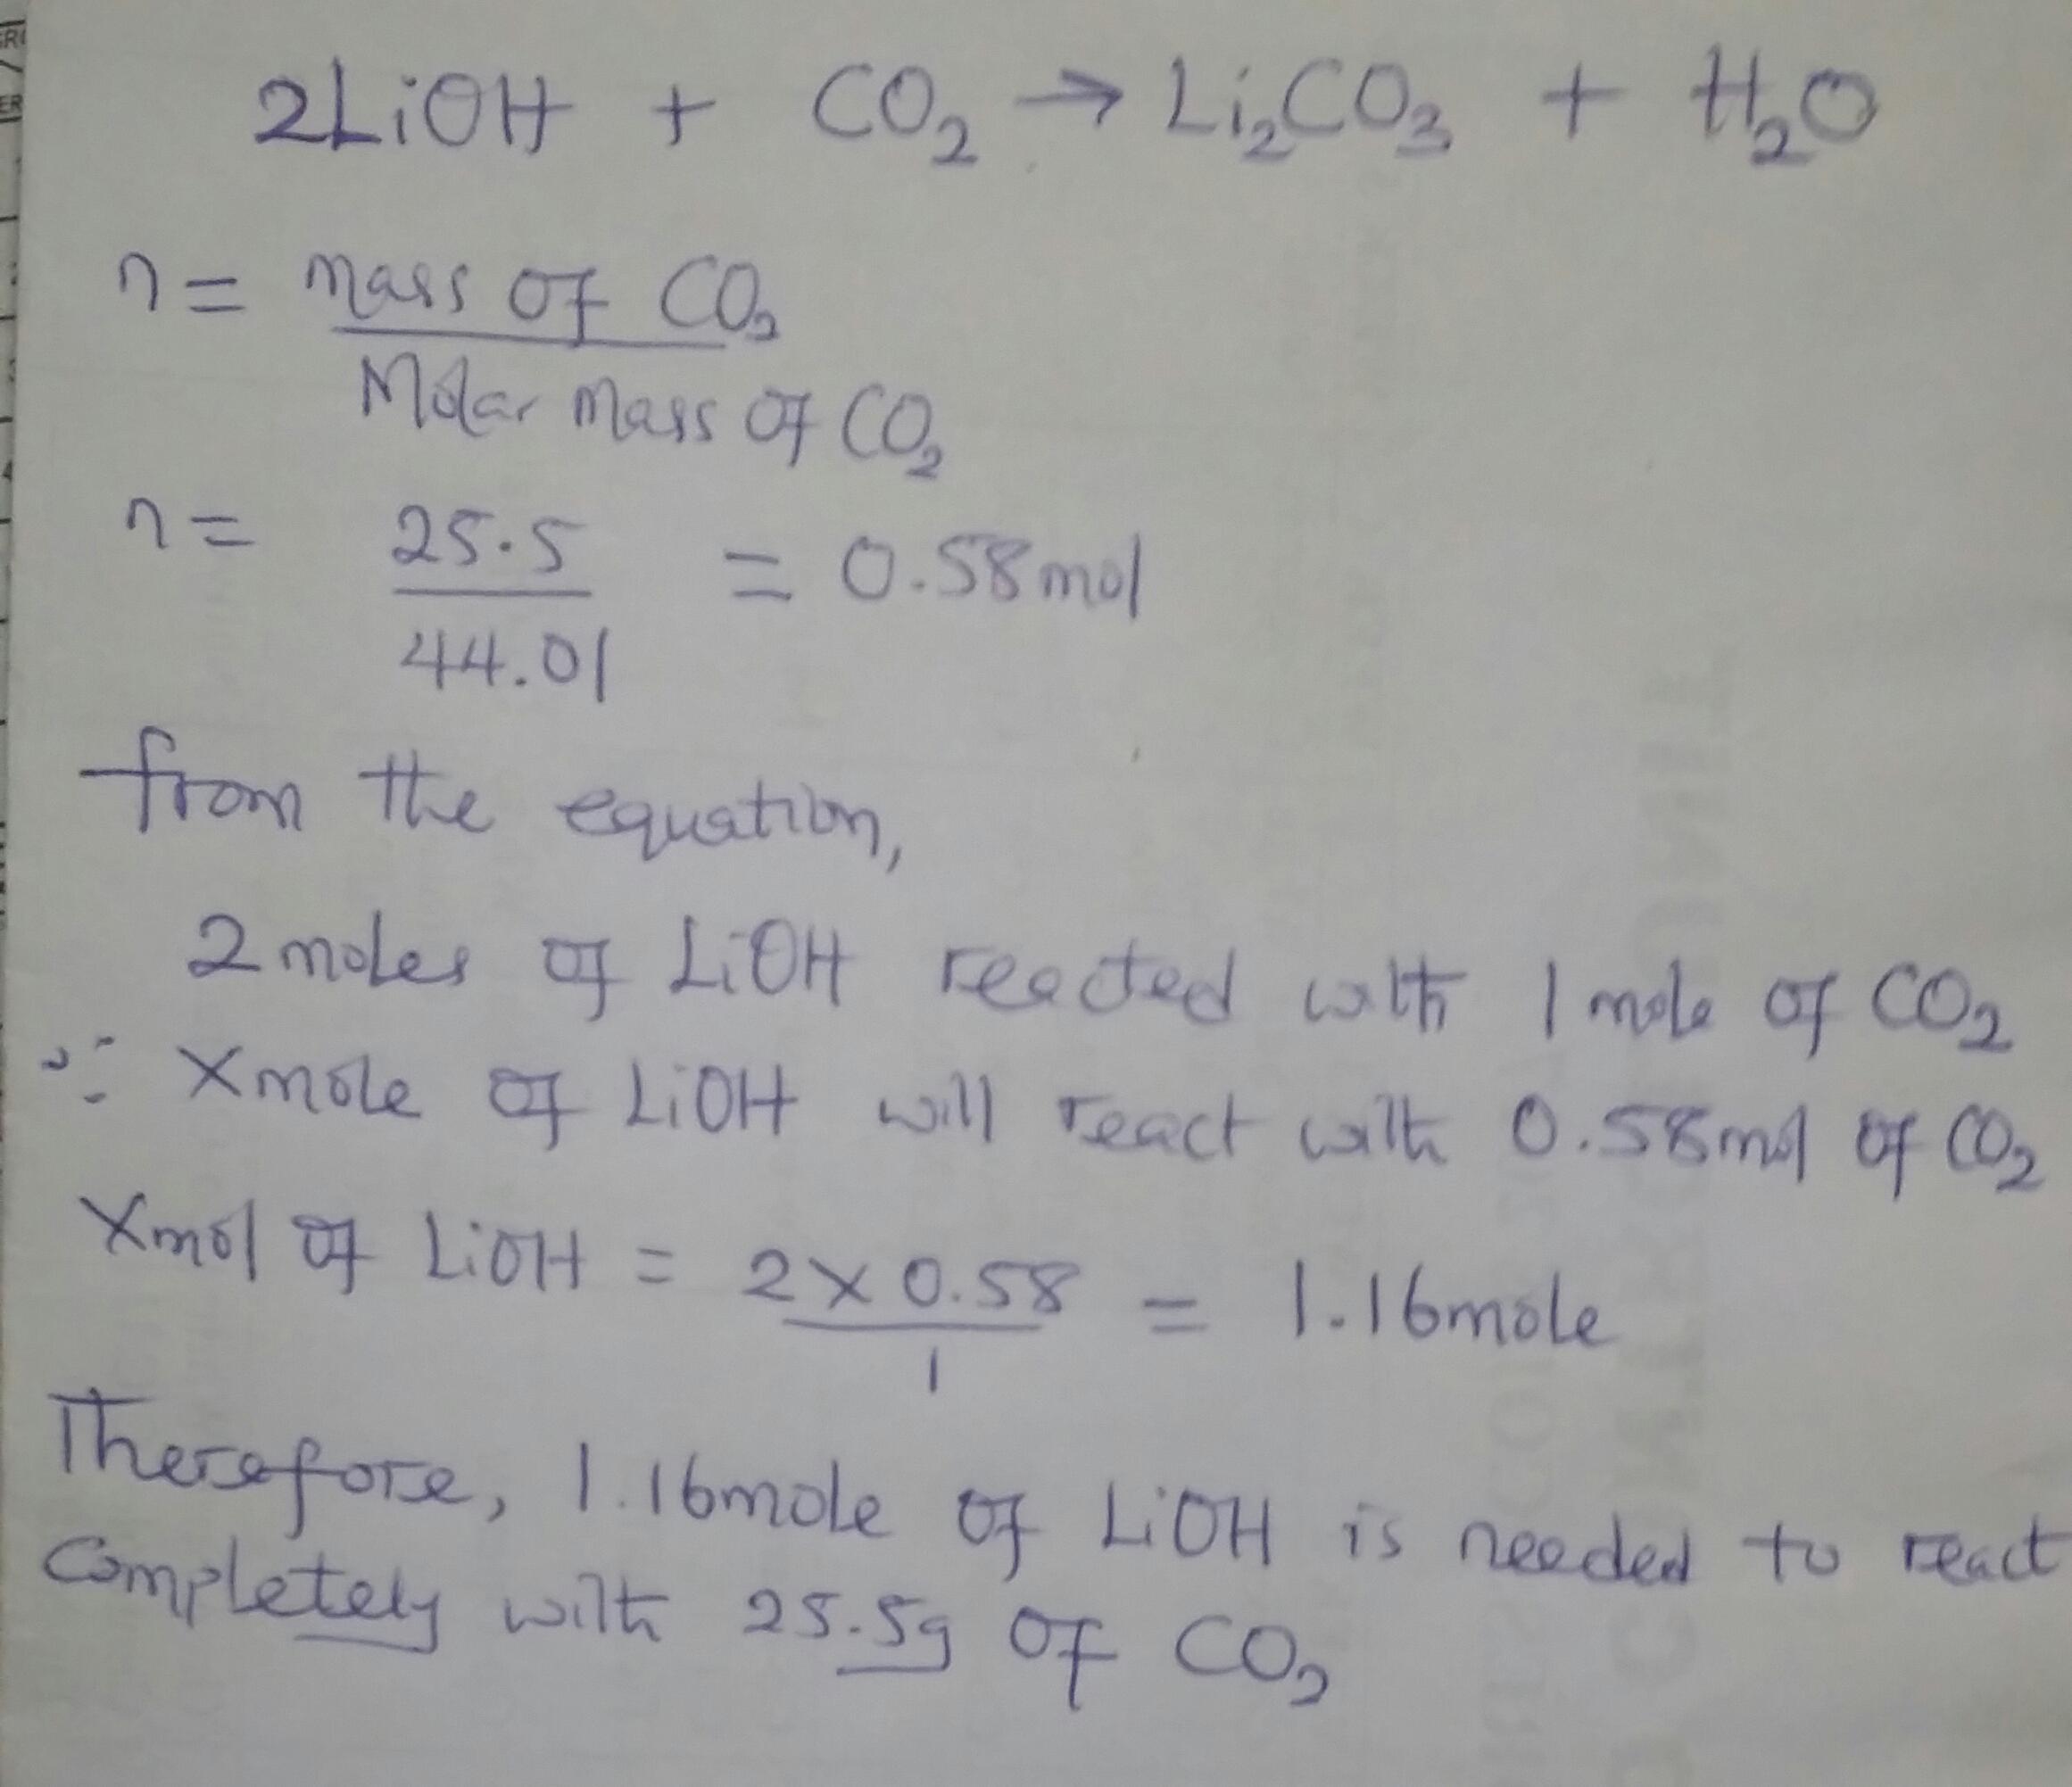 2LiOH + CO₂ → Li₂CO₃ + H₂O
n = mass of CO₂
Molar mass of CO₂
n = 25.5 = 0.58mol
44.01
from the equation,
2 moles of LiOH reacted with 1 mole of CO₂
∴ X mole of LiOH will react with 0.58mol of CO₂
X mol of LiOH = 2 x 0.58 = 1.16mole
1
Therefore, 1.16mole of LiOH is needed to react
Completely with 25.5g of CO₂